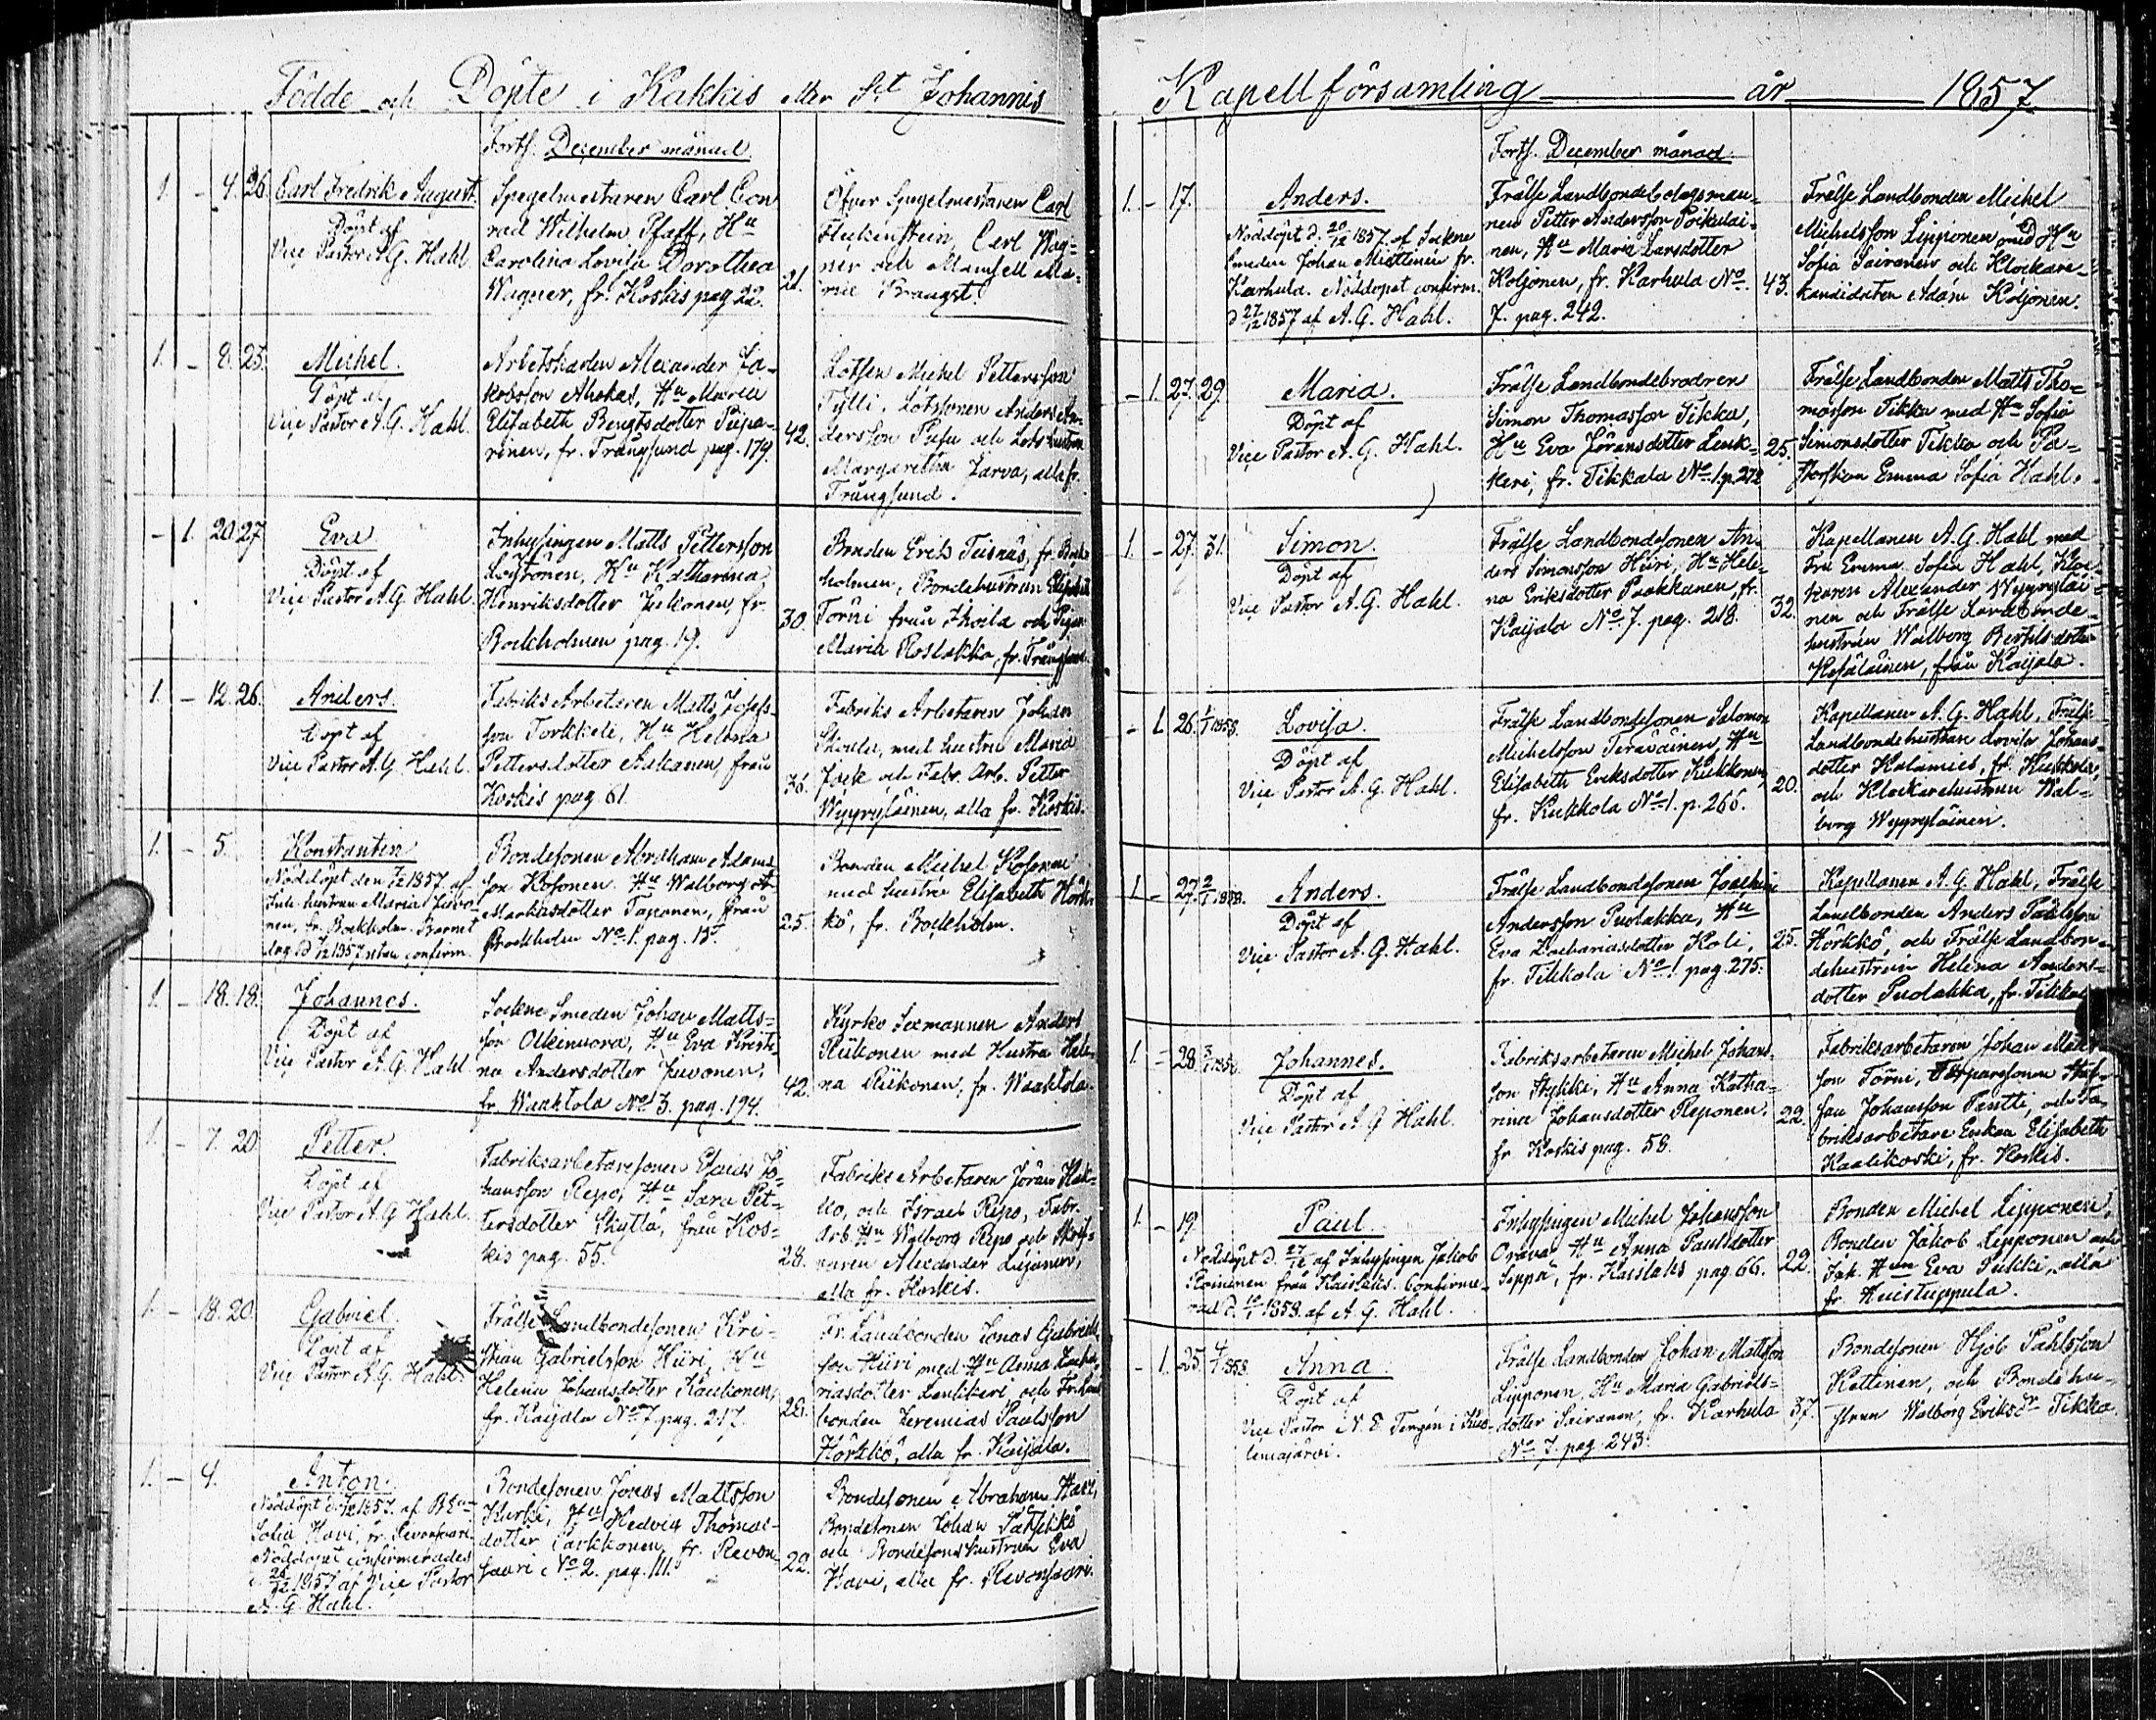 Födde och Döpte i Kakkis eller S:t Johannis
Forts. December månad.
1. - 4. 26. Carl Fredrik August.
Döpt af
Vice Pastor A. G. Hahl.
Spegelmestaren Carl Con
rad Wilhelm Pfaff, Hu
Carolina Lovisa Dorothea
Wagner, fr. Koskis pag. 22.
21.
Öfver Spegelmestaren Carl
Fleckenstein, Carl Wag-
ner och Mamsell Ma-
rie
1. - 8. 25. Michel.
Döpt af
Vice Pastor A. G. Hahl.
Arbetskarlen Alexander Ja-
kobsson Ahokas, Hu Maria
Elisabeth Bengtsdotter Piipa-
rinen, fr. Trångsund pag. 179.
42.
Lotsen Michel Pettersson
Tylli, Lotssonen Anders An-
dersson Pusu och Lotshustrun
Margaretha Jarva, alla fr.
Trångsund.
- 1. 20. 27. Eva
Döpt af
Vice Pastor A. G. Hahl.
Inhysingen Matts Pettersson
Löytönen, Hu Katharina
Henriksdotter Juskonen, fr.
Bockholmen pag. 19.
30.
Bonden Eriks Teisnäs, fr. Bock-
holmen, Bondehustrun Elisabet
Törni från Ihoila och Pigan
Maria Roslakka, fr. Trångsund.
1. - 12. 26. Anders.
Döpt af
Vice Pastor A. G. Hahl.
Fabriks Arbetaren Matts Josefs-
son Torkkeli, Hu Helena
Pettersdotter Askanen, från
Koskis pag 61.
36.
Fabriks Arbetaren Johan
med hustru Maria
och Fabr. Arb. Petter
Wyyryläinen, alla fr. Koskis.
1. - 5. Konstantin
Nöddöpt den 7/12 1857 af
Inh. hustrun Maria Juvo-
nen, fr. Bockholm. Barnet
dog utan confirm.
Bondesonen Abraham Adams
son Kosonen Hu Walborg
Markusdotter Taponen, från
Bockholm No 1. pag. 15.
25.
Bonden Michel Kosonen
med hustru Elisabeth Hörk-
kö, fr. Bockholm.
1. - 18. 18. Johannes.
Döpt af
Vice Pastor A. G. Hahl
Sockne Smeden Johan Matts-
son Olkinuora, Hu Eva Kristi-
na Andersdotter Juvonen,
fr. Waahtola No 3. pag. 194.
42.
Kyrko Sexmannen Anders
Riikonen med Hustru Hele-
na Riikonen, fr. Waahtola.
1. - 7. 20. Petter.
Döpt af
Vice Pastor A. G. Hahl.
Fabriksarbetaresonen Elias Jo-
hansson Repo, Hu Sara Pet-
tersdotter Skyttä, från Kos-
kis pag. 55.
28.
Fabriks Arbetaren Jöran
och Israel Repo, Fabr.
Arb. Hu Walborg Repo och
Alexander
alla fr. Koskis.
1. - 18. 20. Gabriel.
Döpt af
Vice Pastor A. G. Hahl.
Frälse Landbondesonen Kri-
stian Gabrielsson Hüri, Hu
Helena Johansdotter Kaukonen,
fr. Kaijala No 7. pag. 217.
Fr. Landbonden Jonas Gabriels-
son Hüri med Hu Anna Zacha-
riasdotter Lenkkeri, och Fr. Land-
bonden Jeremias Paulsson
Hörkkö, alla fr. Kaijala.
1. - 4. Anton.
Nöddöpt
Sofia Havi, fr. Revonsaari.
Nöddopet confirmerades
26/12 1857 af Vice Pastor
A. G. Hahl.
Bondesonen Jonas Mattsson
Kurki, Hu Hedvig Thomas-
dotter Parkkonen, fr. Revon-
saari No 2. pag. 111.
22.
Bondesonen Abraham Havi,
Bondesonen Johan
och Bondesonshustrun Eva
Havi, alla fr. Revonsaari.
Kapellförsamling år 1857
Forts. December månad.
1. - 17. Anders.
Nöddöpt d. 20/12 1857. af Sockne
Smeden Johan Miettinen fr.
Karhula. Nöddopet confirm.
d 27/12 1857 af A. G. Hahl.
Frälse Landbondebolagsman-
nen Petter Andersson Poikulai-
nen, Hu Maria Larsdotter
Koljonen, fr. Karhula No
7. pag. 242.
43.
Frälse Landbonden Michel
Michelsson Lipponen med Hu
Sofia Sairanen och Klockare-
kandidaten Adam Koljonen.
- 1. 27. 29. Maria.
Döpt af
Vice Pastor A. G. Hahl.
Frälse Landbondebrodren
Simon Thomasson Tikka,
Hu Eva Jöransdotter Lenk-
keri, fr. Tikkala No 1. p. 272
25.
Frälse Landbonden Matts Tho-
masson Tikka med Hu Sofia
Simonsdotter Tikka och Pa-
storskan Emma Sofia Hahl.
1. - 27. 31. Simon.
Döpt af
Vice Pastor A. G. Hahl.
Frälse Landbondesonen An-
ders Simonsson Hüri, Hu Hele-
na Eriksdotter Paakkanen, fr.
Kaijala No 7. pag. 218.
32.
Kapellanen A. G. Hahl med
Fru Emma Sofia Hahl, Kloc-
karen Alexander Wyyryläi-
nen och Frälse Landbonde-
hustrun Walborg Bertilsdotter
Kesäläinen, från Kaijala.
- 1. 26. 1/1 1858. Lovisa.
Döpt af
Vice Pastor A. G. Hahl.
Frälse Landbondesonen Salomon
Michelsson Teräväinen, Hu
Elisabeth Eriksdotter Kukkonen,
fr. Kukkola No 1. p. 266.
20.
Kapellanen A. G. Hahl, Frälse
Landbondehustrun Lovisa Johans-
dotter Kalamies, fr. Kukkola,
och Klockarehustrun Wal-
borg Wyyryläinen.
1. - 27. 2/1 1858. Anders.
Döpt af
Vice Pastor A. G. Hahl.
Frälse Landbondesonen Joachim
Andersson Puolakka, Hu
Eva Zachariasdotter Koli,
fr. Tikkala No 1 pag. 275.
25.
Kapellanen A. G. Hahl, Frälse
Landbonden Anders Påhlsson
Hörkkö och Frälse Landbon-
dehustrun Helena Anders-
dotter Puolakka, fr. Tikkala
1. - 28. 3/1 1858. Johannes.
Döpt af
Vice Pastor A. G. Hahl.
Fabriksarbetaren Michel Johans-
son Mykke, Hu Anna Katha-
rina Johansdotter Reponen,
fr. Koskis pag. 58.
22.
Fabriksarbetaren Johan Matts-
son Törni, Torparesonen Staf-
fan Johansson Pantti, och Fa-
briksarbetare Enkan Elisabeth
Kaalikoski, fr. Koskis.
1. - 19. Paul.
Nöddöpt d. 27/12 af Inhysingen Jakob
Roininen från Kaislaks. Confirme-
rad d. 10/1 1858. af A. G. Hahl.
Inhysingen Michel Johansson
Orava Hu Anna Paulsdotter
Seppä, fr. Kaislaks pag. 66.
22.
Bonden Michel Lipponen,
Bonden Jakob Lipponen och
Jak. Hun Eva Pukki, alla
fr. Huistuppula.
- 1. 25. 4/1 1858. Anna
Döpt af
Vice Pastor N. E. Tengén i Kuo-
lemajärvi.
Frälse Landbonden Johan Mattsson
Lipponen, Hu Maria Gabriels-
dotter Sairanen, fr. Karhula
No 7. pag. 243.
37.
Bondesonen Hjob Påhlsson
Kettinen, och Bondehu-
strun Walborg Eriksdr Tikka.